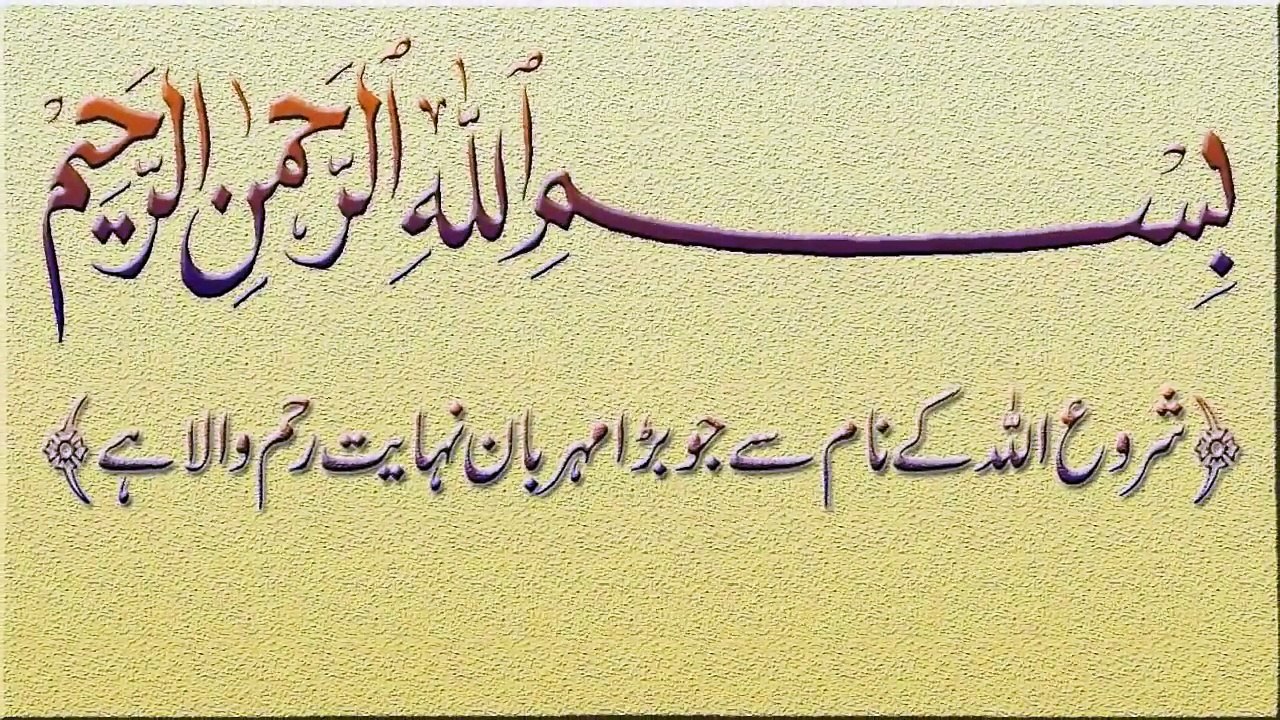 بِسْمِ ٱللّٰهِ ٱلرَّحْمٰنِ ٱلرَّحِيْمِ
﴿شروع اللہ کے نام سے جو بڑا مہربان نہایت رحم والا ہے﴾